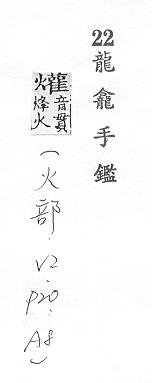 22龍龕手鑑
爟音貫
烽火
(火部.V2.p20.A8)